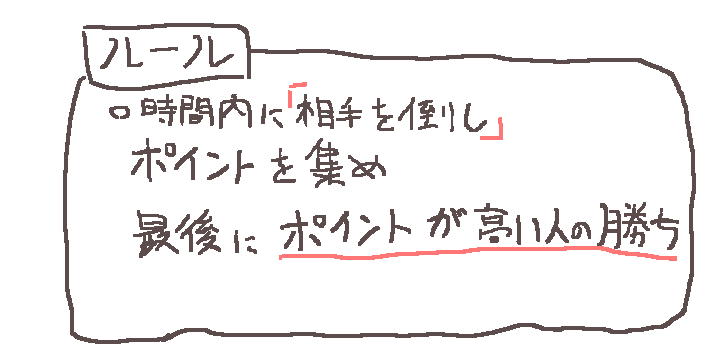 ルール
○時間内に「相手を倒し」
ポイントを集め
最後にポイントが高い人の勝ち